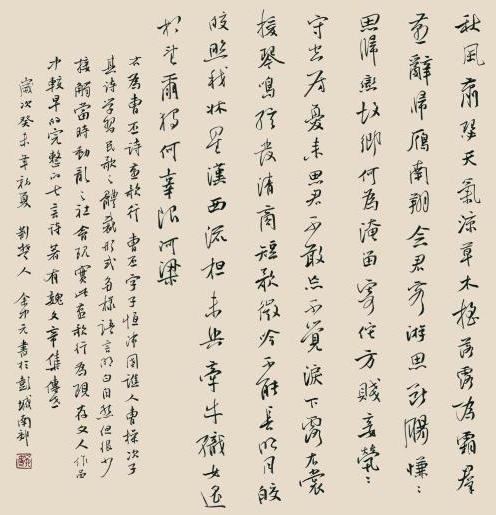 秋風蕭瑟天氣涼草木搖落露為霜群
燕辭歸雁南翔念君客游思斷腸慊〻
思歸戀故鄉何為淹留寄佗方賤妾煢〻
守空房憂來思君不敢忘不覺淚下霑衣裳
援琴鳴弦發清商短歌微吟不能長明月皎
皎照我牀星漢西流夜未央牽牛織女遙
相望爾獨何辜限河梁
右為曹丕詩燕歌行 曹丕字子恒沛國譙人曹操次子
其詩學習民歌之體裁形式多樣語言明白自然但很少
接觸當時動亂之社會現實此燕歌行為現存文人作品
中較早的完整的七言詩著有魏文帝集傳世
歲次癸未年初夏 楚人 書於彭城南郊